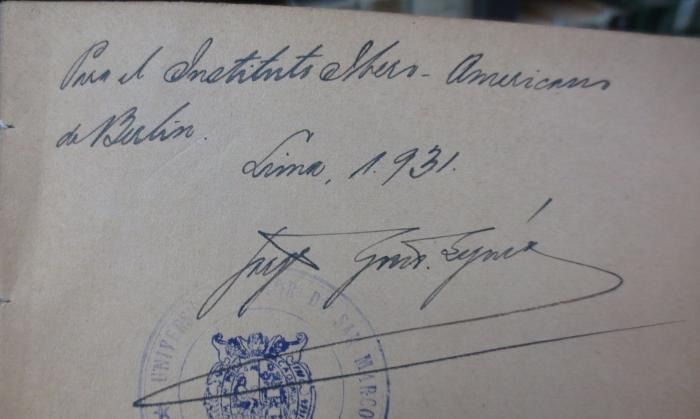 Para el Instituto Ibero-Americano
de Berlin.
Lima, 1.931.
Jorge
UNIVERSI OR DE SAN MARCO